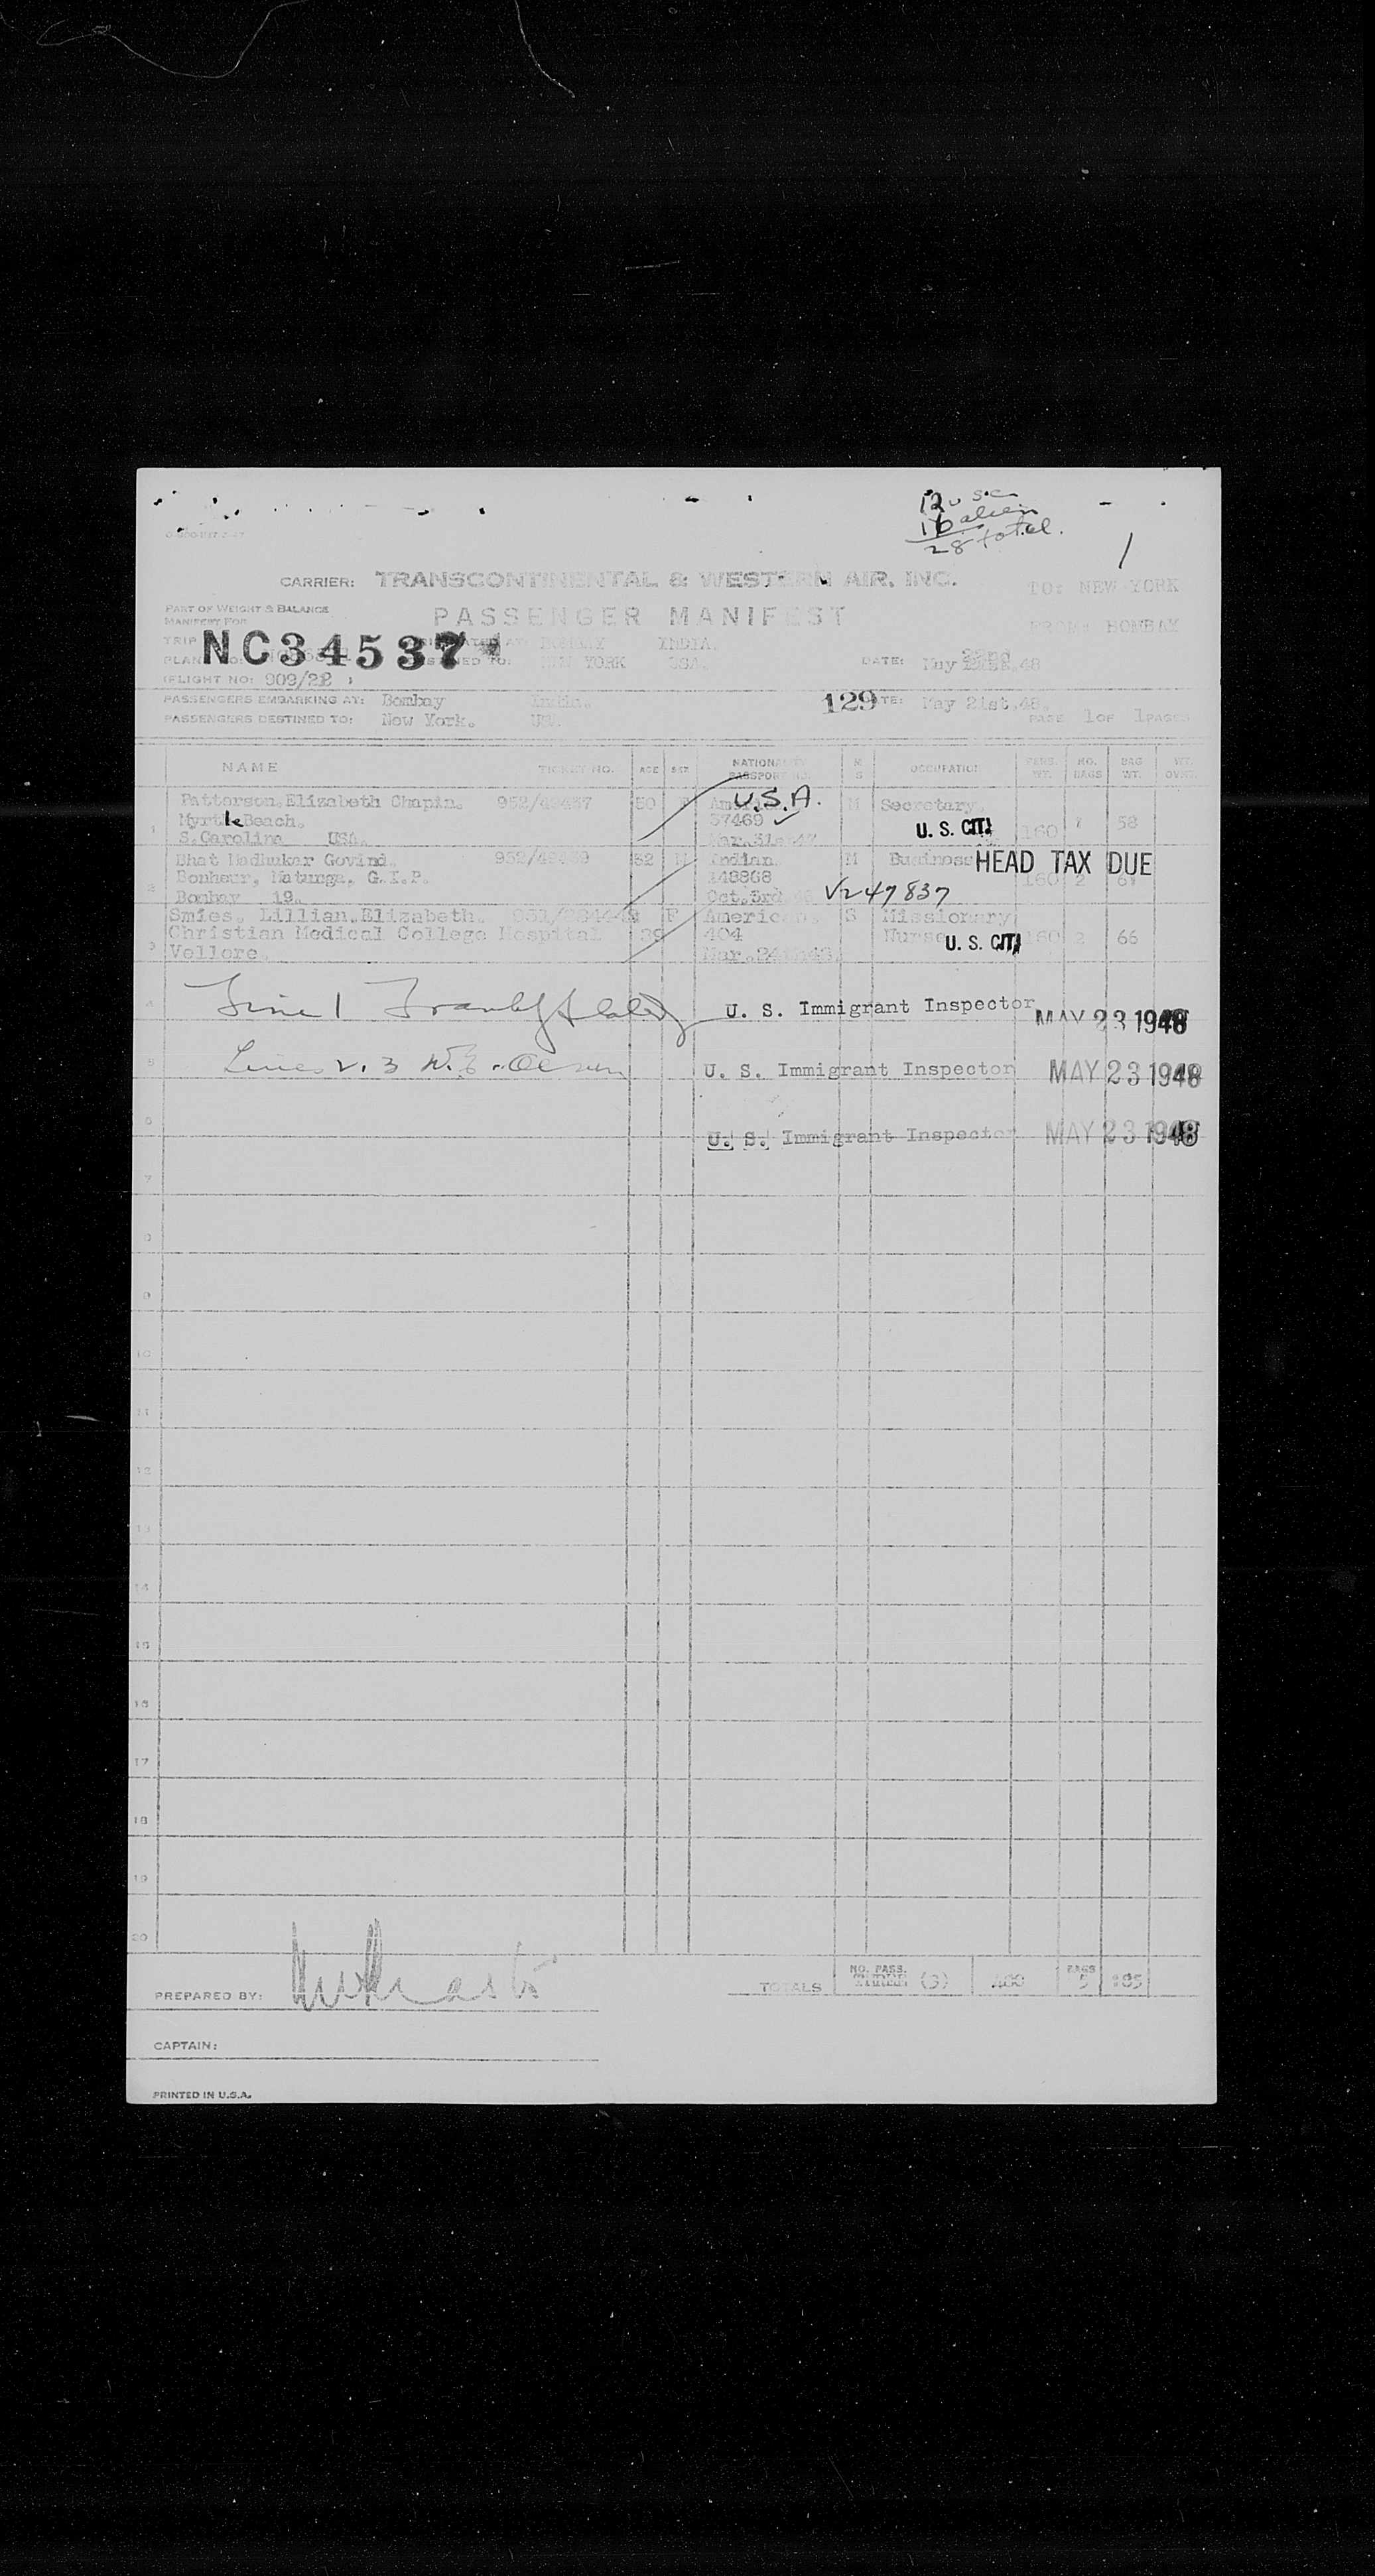 12 usc
16 alien
28 total.
1
CARRIER: TRANSCONTINENTAL & WESTERN AIR, INC.
TO: NEW YORK
PART OF WEIGHT & BALANCE
PASSENGER MANIFEST
MANIFEST FOR
FROM: BOMBAY
TRIP
NC34537
BOMBAY INDIA.
PLANE NO:
DESTINED TO: NEW YORK USA.
DATE: May 22nd, 48
(FLIGHT NO: 909/22 )
PASSENGERS EMBARKING AT: Bombay India.
129
DATE: May 21st, 48.
PASSENGERS DESTINED TO: New York.
PAGE 1 OF 1 PAGES
NAME TICKET NO. AGE SEX NATIONALITY PASSPORT NO. M S OCCUPATION PASS. WT. NO. BAGS BAG WT. WT. OVER
Patterson, Elizabeth Chapin. 952/49437 50 U.S.A. M Secretary.
1 Myrtle Beach. 37469 ✓ U. S. CIT. 160 58
S. Carolina USA. Mar. 31st 47
Bhat Madhukar Govind. 32 M Indian. M Business HEAD TAX DUE
2 Bonheur, Matunga, G.I.P. 148868 160 2 61
Bombay 19. Oct. 3rd V247837
Smies, Lillian, Elizabeth. F American. S Missionary
Christian Medical College Hospital 39 404 Nurse U. S. CIT. 160 2 66
3 Vellore. Mar. 24th 48.
4 Line 1 U. S. Immigrant Inspector MAY 23 1948
5 Lines 2, 3 U. S. Immigrant Inspector MAY 23 1948
6 U. S. Immigrant Inspector MAY 23 1948
7
8
9
10
11
12
13
14
15
16
17
18
19
20
PREPARED BY:
TOTALS NO. PASS. (3) 480 BAGS 5 185
CAPTAIN:
PRINTED IN U.S.A.